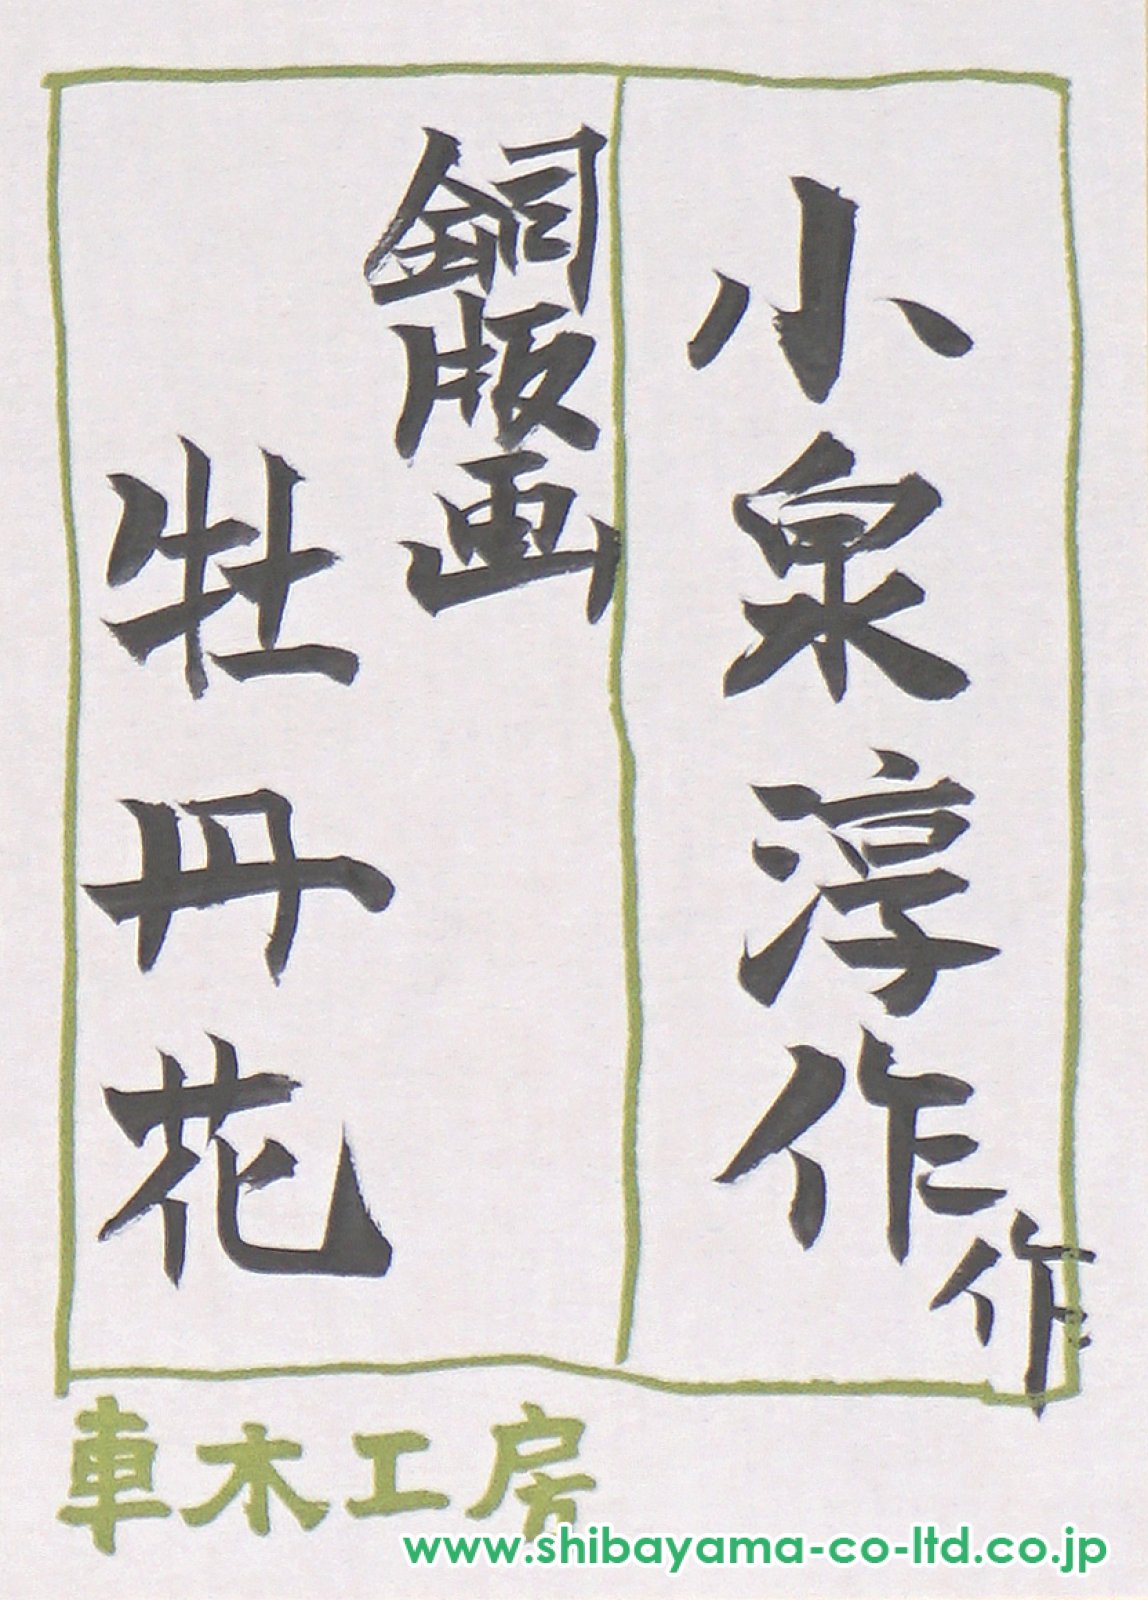 小泉淳作作
銅版画
牡丹花
車木工房
www.shibayama-co-ltd.co.jp